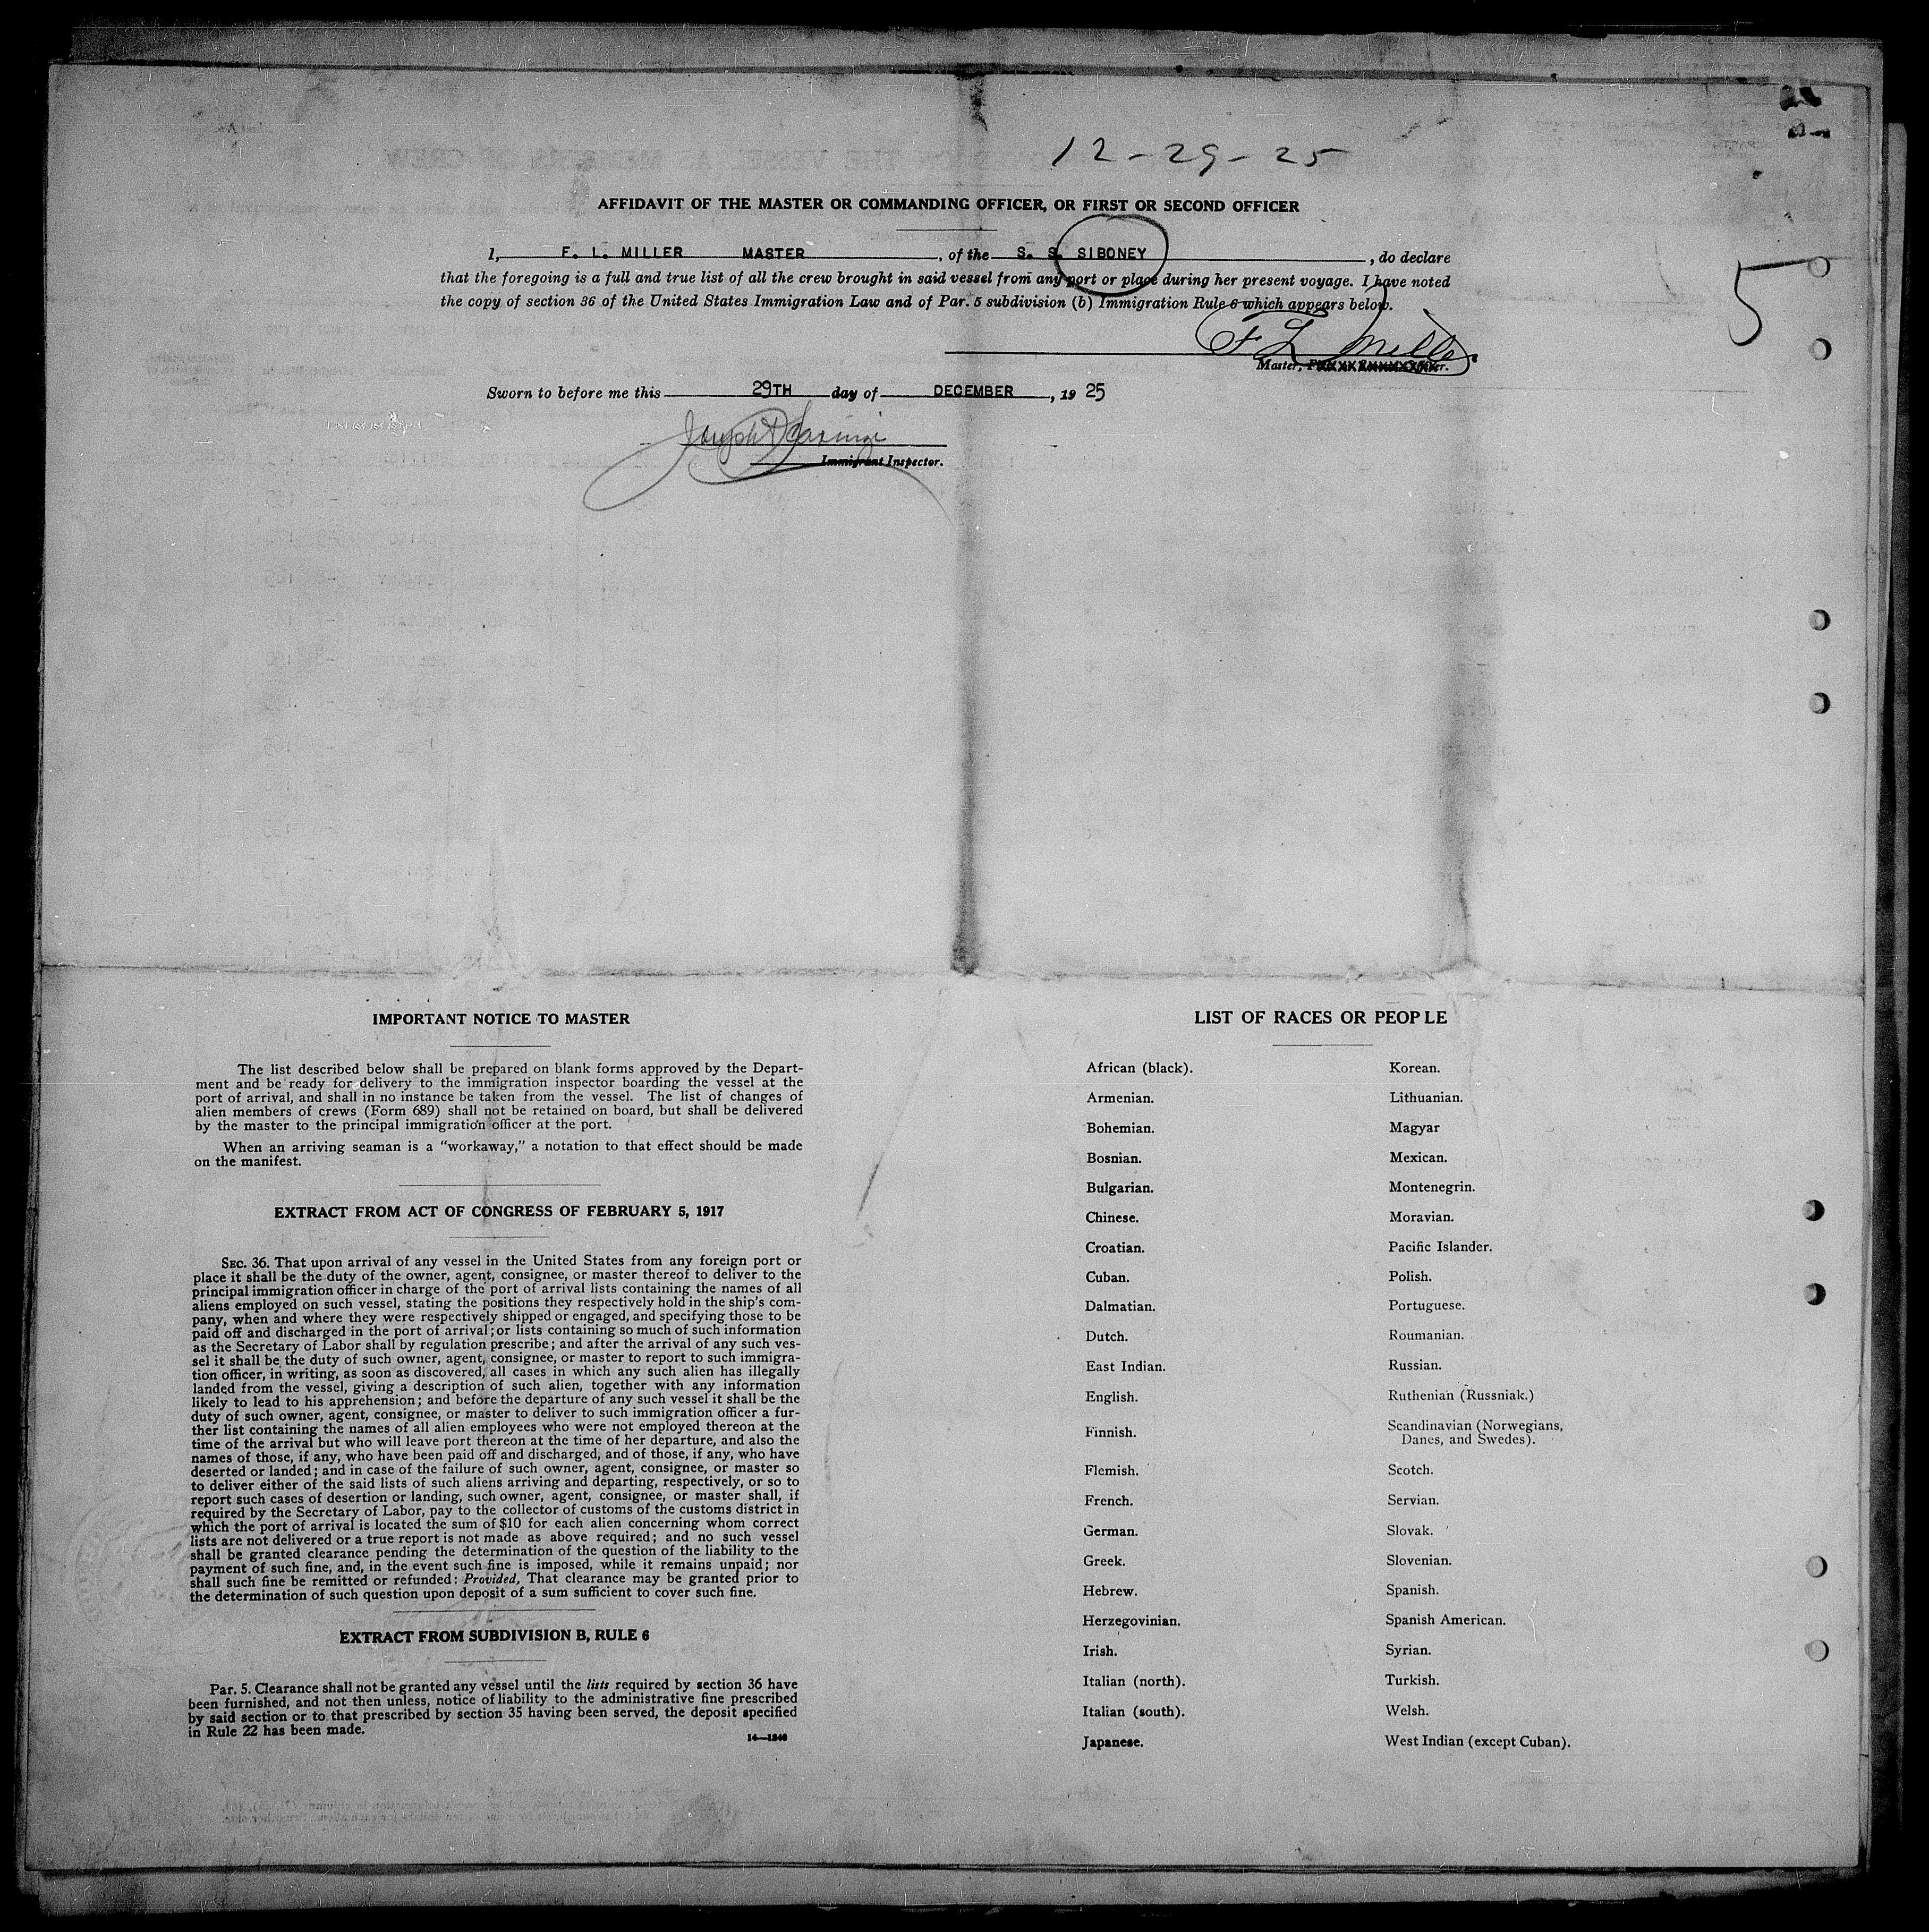 12-29-25
AFFIDAVIT OF THE MASTER OR COMMANDING OFFICER, OR FIRST OR SECOND OFFICER
I, F. L. MILLER MASTER, of the S. S. SIBONEY, do declare
that the foregoing is a full and true list of all the crew brought in said vessel from any port or place during her present voyage. I have noted
the copy of section 36 of the United States Immigration Law and of Par. 5 subdivision (b) Immigration Rule 6 which appears below.
5
F L Miller
Master,
Sworn to before me this 29TH day of DECEMBER, 19 25
Joseph
Immigrant Inspector.
IMPORTANT NOTICE TO MASTER
The list described below shall be prepared on blank forms approved by the Depart-
ment and be ready for delivery to the immigration inspector boarding the vessel at the
port of arrival, and shall in no instance be taken from the vessel. The list of changes of
alien members of crews (Form 689) shall not be retained on board, but shall be delivered
by the master to the principal immigration officer at the port.
When an arriving seaman is a "workaway," a notation to that effect should be made
on the manifest.
EXTRACT FROM ACT OF CONGRESS OF FEBRUARY 5, 1917
SEC. 36. That upon arrival of any vessel in the United States from any foreign port or
place it shall be the duty of the owner, agent, consignee, or master thereof to deliver to the
principal immigration officer in charge of the port of arrival lists containing the names of all
aliens employed on such vessel, stating the positions they respectively hold in the ship's com-
pany, when and where they were respectively shipped or engaged, and specifying those to be
paid off and discharged in the port of arrival; or lists containing so much of such information
as the Secretary of Labor shall by regulation prescribe; and after the arrival of any such ves-
sel it shall be the duty of such owner, agent, consignee, or master to report to such immigra-
tion officer, in writing, as soon as discovered, all cases in which any such alien has illegally
landed from the vessel, giving a description of such alien, together with any information
likely to lead to his apprehension; and before the departure of any such vessel it shall be the
duty of such owner, agent, consignee, or master to deliver to such immigration officer a fur-
ther list containing the names of all alien employees who were not employed thereon at the
time of the arrival but who will leave port thereon at the time of her departure, and also the
names of those, if any, who have been paid off and discharged, and of those, if any, who have
deserted or landed; and in case of the failure of such owner, agent, consignee, or master so
to deliver either of the said lists of such aliens arriving and departing, respectively, or so to
report such cases of desertion or landing, such owner, agent, consignee, or master shall, if
required by the Secretary of Labor, pay to the collector of customs of the customs district in
which the port of arrival is located the sum of $10 for each alien concerning whom correct
lists are not delivered or a true report is not made as above required; and no such vessel
shall be granted clearance pending the determination of the question of the liability to the
payment of such fine, and, in the event such fine is imposed, while it remains unpaid; nor
shall such fine be remitted or refunded: Provided, That clearance may be granted prior to
the determination of such question upon deposit of a sum sufficient to cover such fine.
EXTRACT FROM SUBDIVISION B, RULE 6
Par. 5. Clearance shall not be granted any vessel until the lists required by section 36 have
been furnished, and not then unless, notice of liability to the administrative fine prescribed
by said section or to that prescribed by section 35 having been served, the deposit specified
in Rule 22 has been made.
14—1240
LIST OF RACES OR PEOPLE
African (black).
Armenian.
Bohemian.
Bosnian.
Bulgarian.
Chinese.
Croatian.
Cuban.
Dalmatian.
Dutch.
East Indian.
English.
Finnish.
Flemish.
French.
German.
Greek.
Hebrew.
Herzegovinian.
Irish.
Italian (north).
Italian (south).
Japanese.
Korean.
Lithuanian.
Magyar
Mexican.
Montenegrin.
Moravian.
Pacific Islander.
Polish.
Portuguese.
Roumanian.
Russian.
Ruthenian (Russniak.)
Scandinavian (Norwegians,
Danes, and Swedes).
Scotch.
Servian.
Slovak.
Slovenian.
Spanish.
Spanish American.
Syrian.
Turkish.
Welsh.
West Indian (except Cuban).